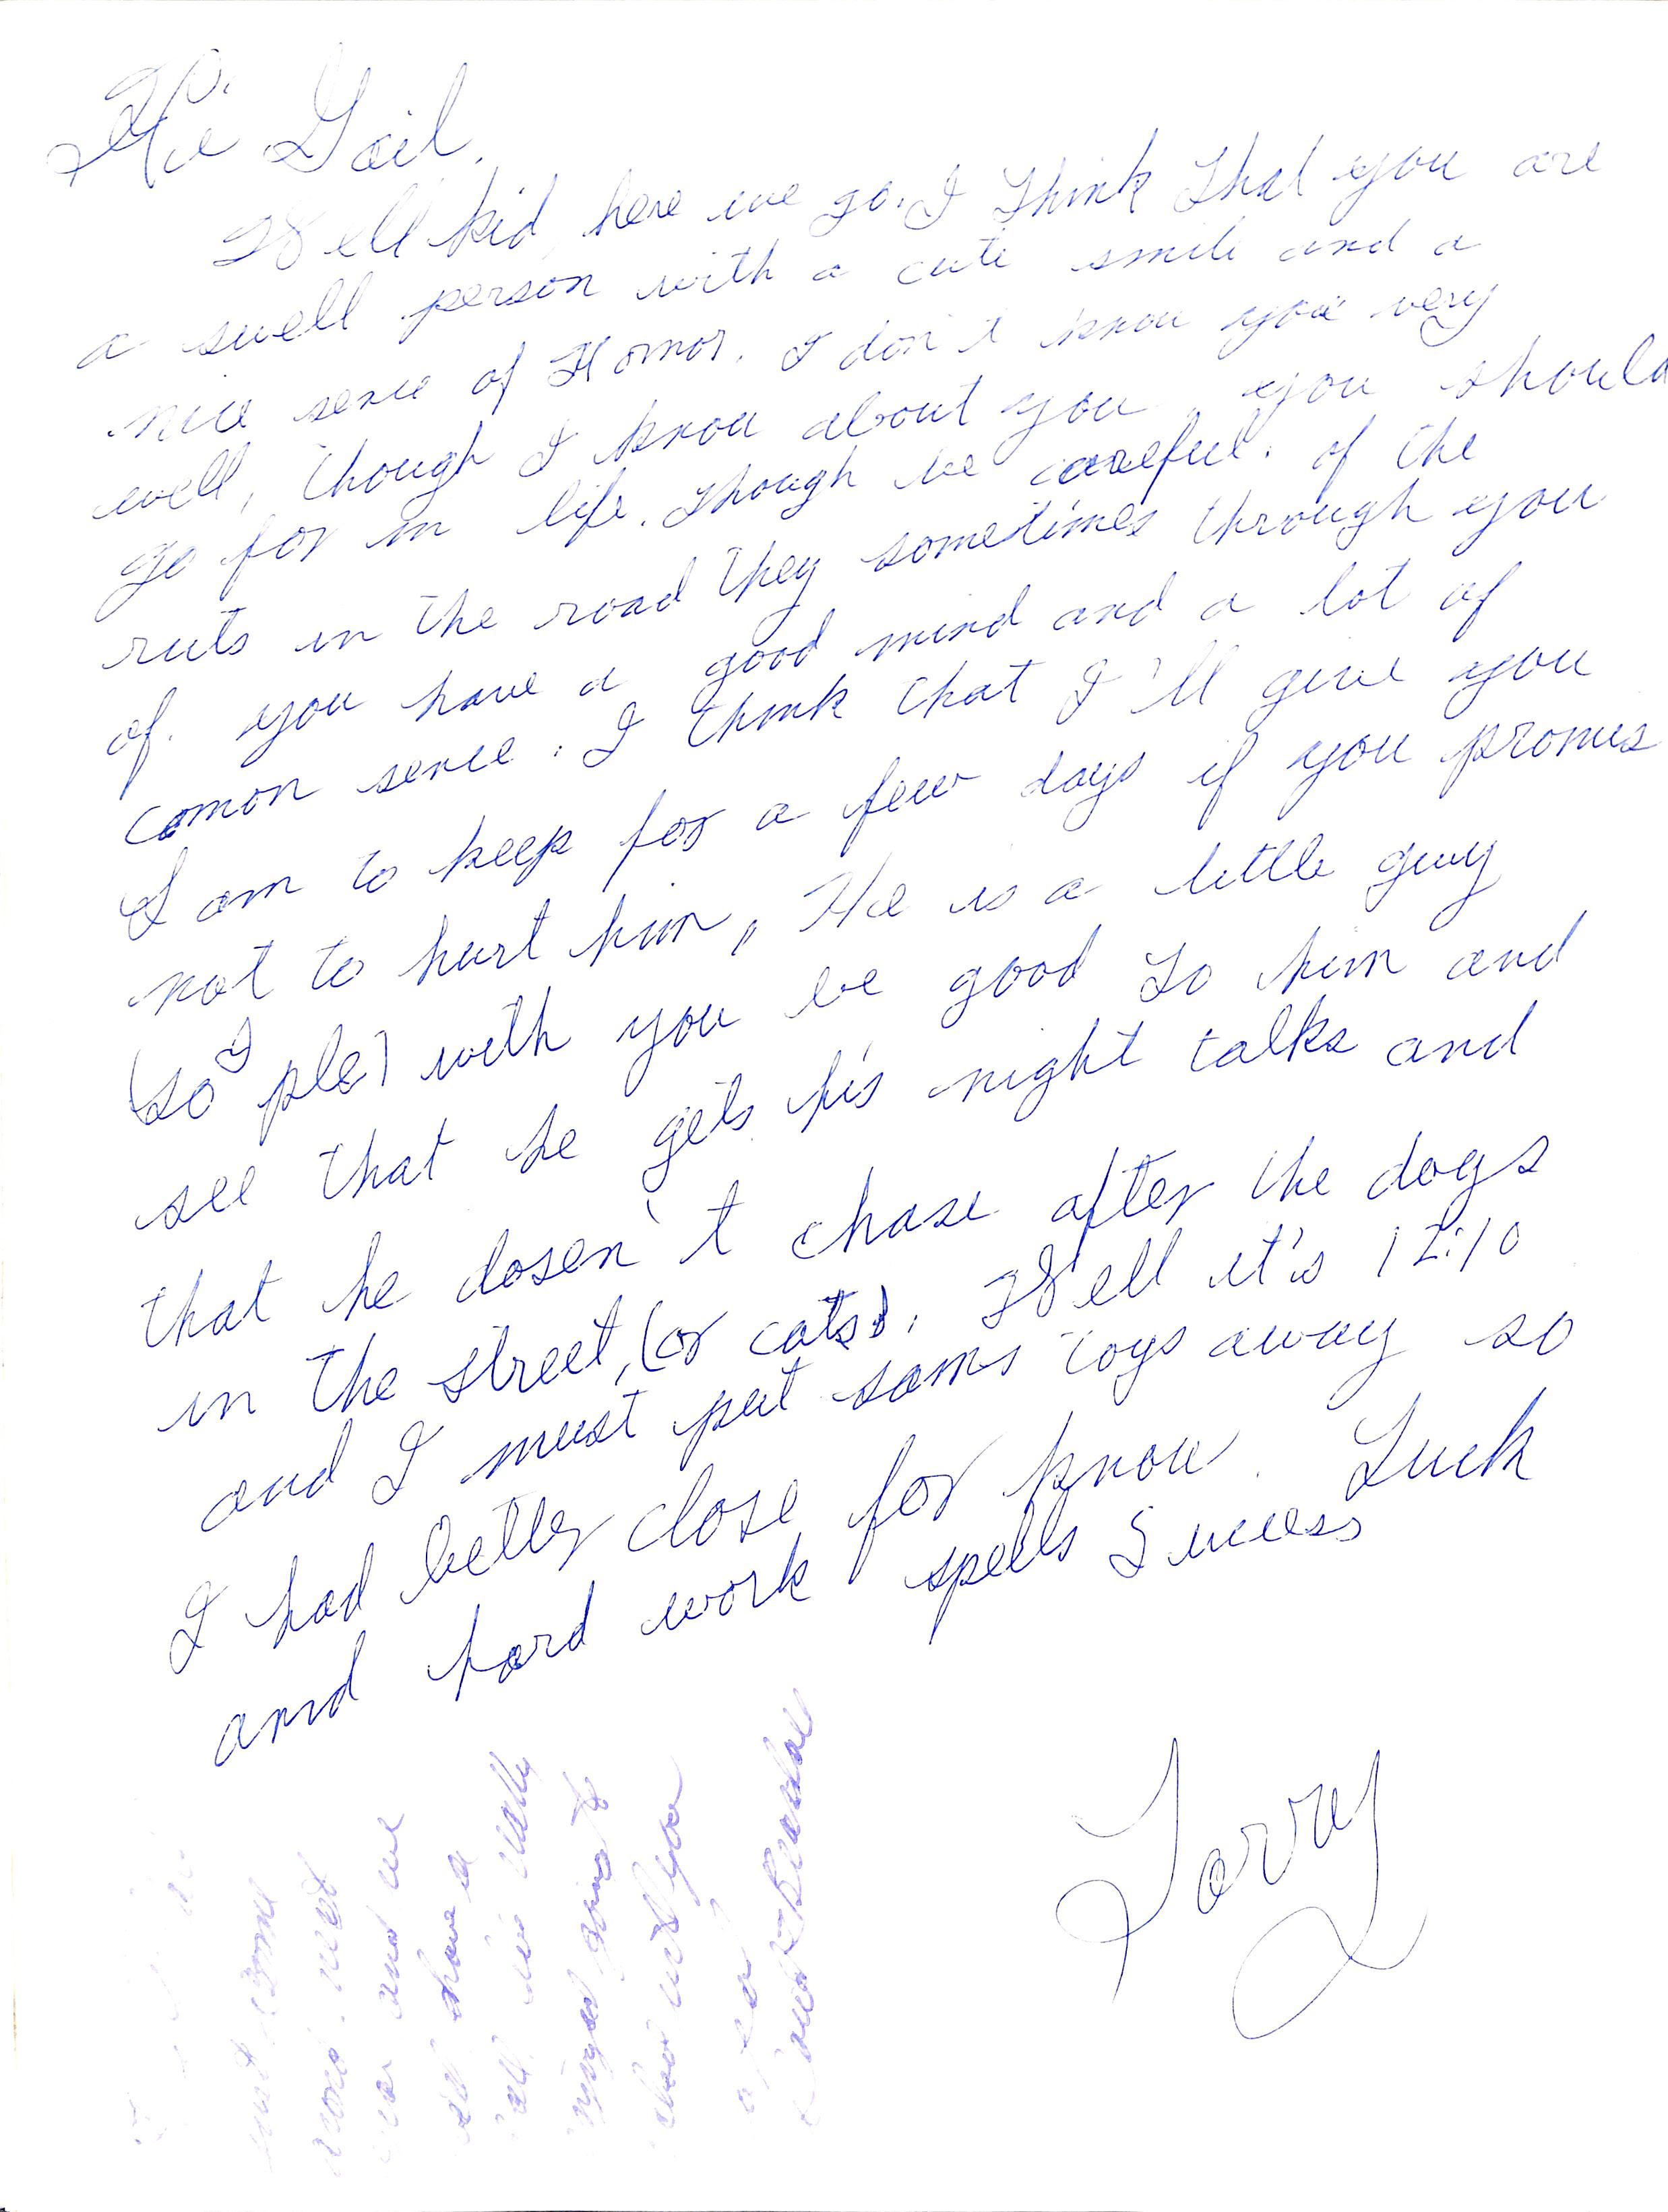 Hi Gail,
Well kid, here we go. I think that you are
a swell person with a cute smile and a
nice sence of Homor. I don't know you very
well, though I know about you, you should
go for in life. though be careful. of the
ruts in the road they sometimes through you
of. you have a good mind and a lot of
comon sence. I think that I'll give you
I am to keep for a few days if you promis
not to hurt him, He is a little guy
(so ple) with you be good to him and
see that he gets his night talks and
that he dosen't chase after the dogs
in the street, (or cats). Well it's 12:10
and I must put some toys away so
I had better close for know. Luck
and hard work spells Success
Larry
come
next
and we
have a
really
going to
you